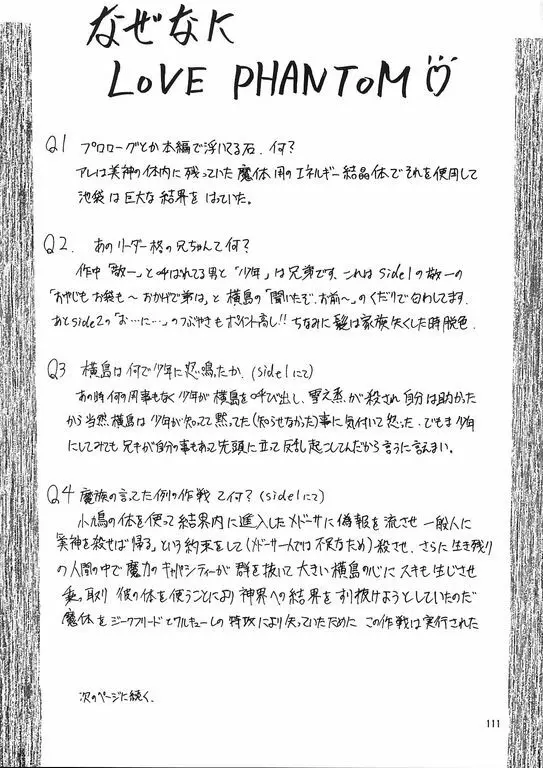 なぜなに
LOVE PHANTOM
Q1 プロローグとか本編で浮いてる石.何?
アレは美神の体内に残っていた魔体用のエネルギー結晶体でそれを使用して
池袋は巨大な結界をはっていた。
Q2. あのリーダー格の兄ちゃんて何?
作中「敬一」と呼ばれてる男と「少年」は兄弟です.これはside1の敬一の
「おやじもお袋も〜おかげで弟は」と横島の「聞いたぞ.お前〜」のくだりで匂わしてます.
あとside2の「お…に…」のつぶやきもポイント高し!! ちなみに髪は家族失くした時脱色.
Q3 横島は何で少年に怒鳴ったか.(side1にて)
あの時何の用事もなく少年が横島を呼び出し、雪之丞が殺され自分は助かった
から当然横島は少年が知ってて黙ってた(知らせなかった)事に気付いて怒った.でもま少年
にしてみても兄キが自分の事もあって先頭に立って反乱起こしてんだから言うに言えまい。
Q4 魔族の言ってた例の作戦て何?(side1にて)
小鳩の体を使って結界内に進入したメドーサに偽報を流させ一般人に
「美神を殺せば帰る」という約束をして(メドーサ一人では不足なため)殺させ、さらに生き残り
の人間の中で魔力のキャパシティーが群を抜いて大きい横島の心にスキを生じさせ
乗っ取り彼の体を使うことにより神界への結界をすり抜けようとしていたのだ
魔体をジークフリードとワルキューレの特攻により失っていたためにこの作戦は実行された
次のページに続く.
111